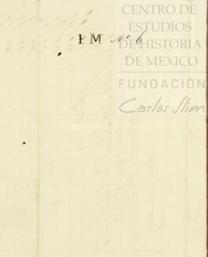 CENTRO DE
ESTUDIOS
DE HISTORIA
DE MÉXICO
FUNDACIÓN
Carlos Slim
IM No 6